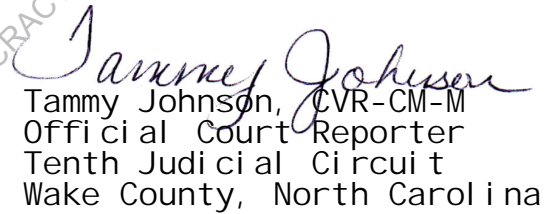 Tammy Johnson
Tammy Johnson, CVR-CM-M
Official Court Reporter
Tenth Judicial Circuit
Wake County, North Carolina